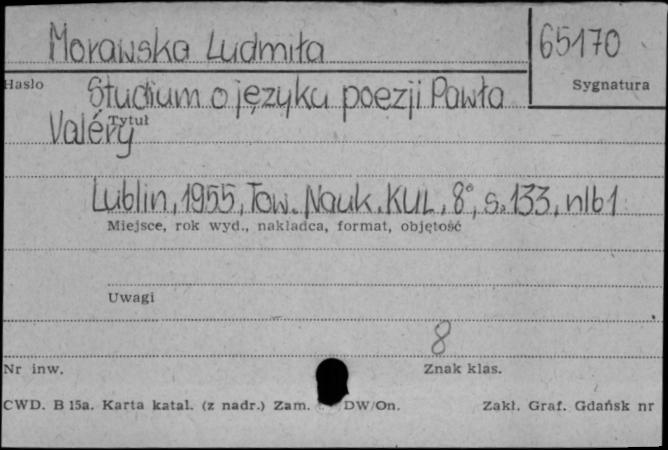 Morawska Ludmiła
65170
Hasło
Sygnatura
Studium o języku poezji Pawła
Tytuł
Valéry
Lublin, 1955, Tow. Nauk. KUL, 8°, s. 133, nlb 1
Miejsce, rok wyd., nakładca, format, objętość
Uwagi
8
Nr inw.
Znak klas.
CWD. B 15a. Karta katal. (z nadr.) Zam. DW/On. Zakł. Graf. Gdańsk nr